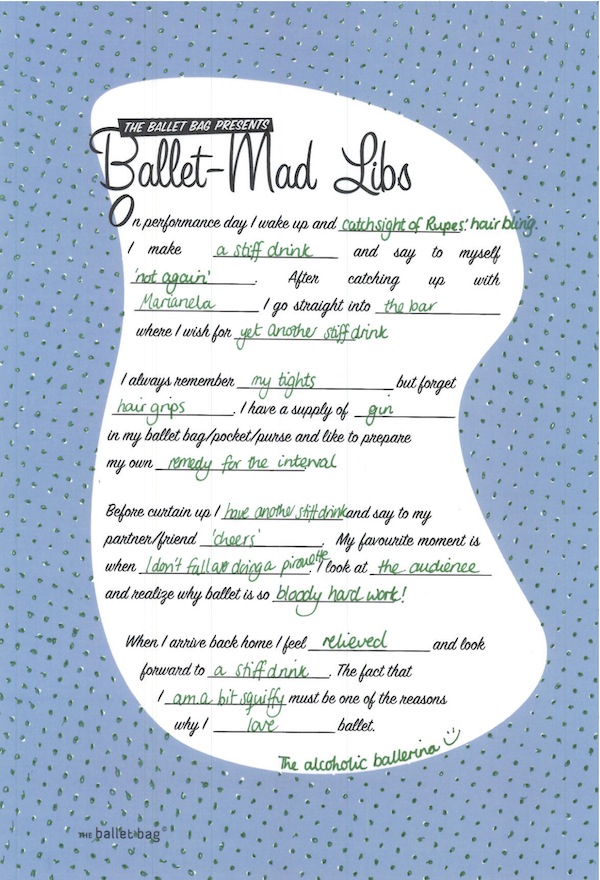 THE BALLET BAG PRESENTS
Ballet-Mad Libs
On performance day I wake up and catch sight of Rupes' hair bling.
I make a stiff drink and say to myself
'not again'. After catching up with
Marianela I go straight into the bar
where I wish for yet another stiff drink
I always remember my tights but forget
hair grips. I have a supply of gin
in my ballet bag/pocket/purse and like to prepare
my own remedy for the interval
Before curtain up I have another stiff drink and say to my
partner/friend 'cheers'. My favourite moment is
when I don't fall doing a pirouette. I look at the audience
and realize why ballet is so bloody hard work!
When I arrive back home I feel relieved and look
forward to a stiff drink. The fact that
I am a bit squiffy must be one of the reasons
why I love ballet.
The alcoholic ballerina
THE ballet bag